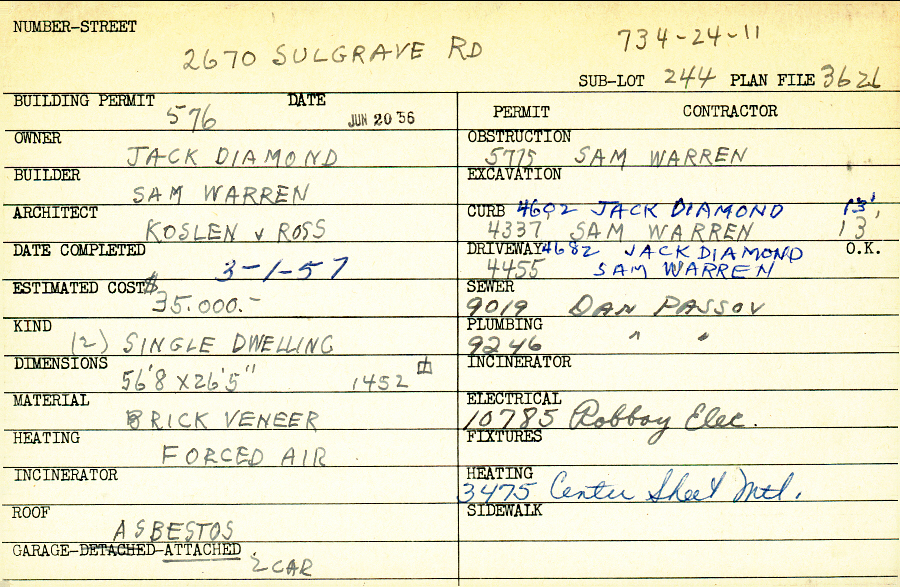 NUMBER-STREET
2670 SULGRAVE RD
734-24-11
SUB-LOT 244 PLAN FILE 3626
BUILDING PERMIT 576 DATE JUN 20 56
OWNER JACK DIAMOND
BUILDER SAM WARREN
ARCHITECT KOSLEN & ROSS
DATE COMPLETED 3-1-57
ESTIMATED COST $35.000.-
KIND (2) SINGLE DWELLING
DIMENSIONS 56'8 X 26'5" 1452
MATERIAL BRICK VENEER
HEATING FORCED AIR
INCINERATOR
ROOF ASBESTOS
GARAGE-DETACHED-ATTACHED 2 CAR
PERMIT CONTRACTOR
OBSTRUCTION
5775 SAM WARREN
EXCAVATION
CURB 4692 JACK DIAMOND 13'
4337 SAM WARREN 13'
DRIVEWAY 4682 JACK DIAMOND O.K.
4455 SAM WARREN
SEWER
9019 DAN PASSOV
PLUMBING
9246 " "
INCINERATOR
ELECTRICAL
10785 Robboy Elec.
FIXTURES
HEATING
3475 Center Sheet Mtl.
SIDEWALK